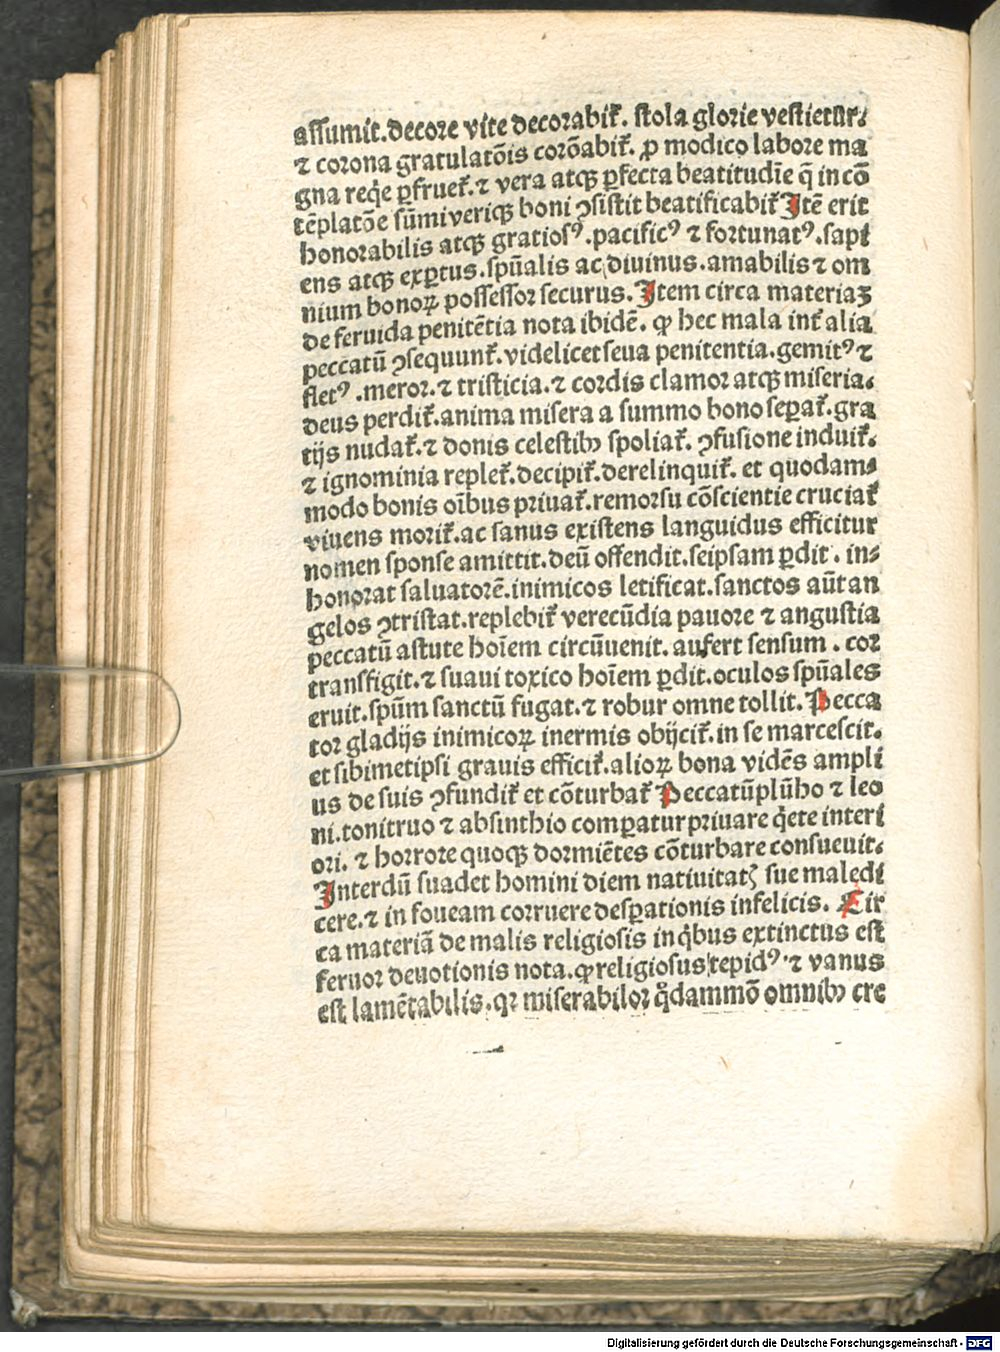 assumit.decore vite decorabit᷑. stola glorie vestietur.
⁊ corona gratulatōis corōabit᷑. ꝓ modico labore ma
gna reqͥe ꝑfruet᷑.⁊ vera atqꝫ ꝑfecta beatitudīe q̄ in cō
tēplatōe sūmi veriqꝫ boni ↄsistit beatificabit᷑ Itē erit
honorabilis atqꝫ gratiosꝰ.pacificꝰ ⁊ fortunatꝰ.sapi
ens atqꝫ exꝑtus.spūalis ac diuinus.amabilis ⁊ om
nium bonoꝝ possessor securus. Item circa materiaꝫ
de feruida penitētia nota ibidē. ꝙ hec mala int᷑ alia
peccatū ↄsequunt᷑.videlicet seua penitentia.gemitꝰ ⁊
fletꝰ .meror.⁊ tristicia.⁊ cordis clamor atqꝫ miseria.
deus perdit᷑.anima misera a summo bono seꝑat᷑.gra
tijs nudat᷑.⁊ donis celestibꝫ spoliat᷑. ↄfusione induit᷑.
⁊ ignominia replet᷑.decipit᷑.derelinquit᷑. et quodam⸗
modo bonis oībus priuat᷑.remorsu cōscientie cruciat᷑
viuens morit᷑.ac sanus existens languidus efficitur
nomen sponse amittit.deū offendit.seipsam ꝑdit . in⸗
honorat saluatorē.inimicos letificat.sanctos aūt an
gelos ↄtristat.replebit᷑ verecūdia pauore ⁊ angustia
peccatū astute hoīem circūuenit. aufert sensum . cor
transfigit.⁊ suaui toxico hoīem ꝑdit.oculos spūales
eruit.spūm sanctū fugat.⁊ robur omne tollit. Pecca
tor gladijs inimicoꝝ inermis obijcit᷑.in se marcescit.
et sibimetipsi grauis efficit᷑.alioꝝ bona vidēs ampli
us de suis ↄfundit᷑ et cōturbat᷑ Peccatū plūbo ⁊ leo
ni.tonitruo ⁊ absinthio comꝑatur priuare qͥete interi
ori. ⁊ horrore quoqꝫ dormiētes cōturbare consueuit.
Interdū suadet homini diem natiuitatꝭ sue maledi
cere.⁊ in foueam corruere desꝑationis infelicis. Cir
ca materiā de malis religiosis in qͥbus extinctus est
feruor deuotionis nota.ꝙ religiosus tepidꝰ ⁊ vanus
est lamētabilis.qꝛ miserabilor qͦdammō omnibꝫ cre
Digitalisierung gefördert durch die Deutsche Forschungsgemeinschaft - DFG